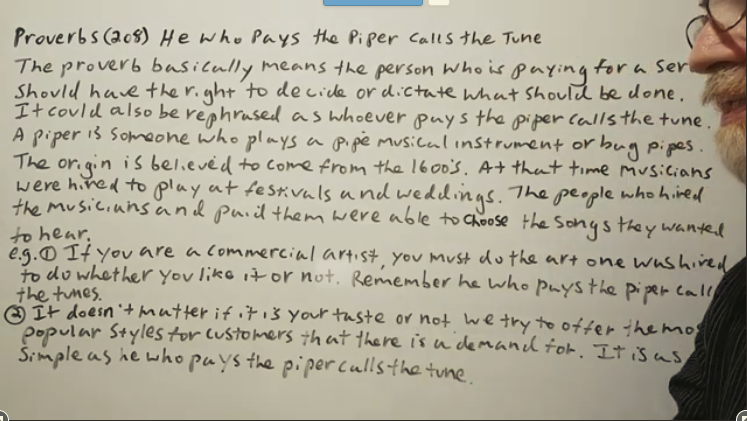 Proverbs (208) He who Pays the Piper Calls the Tune
The proverb basically means the person who is paying for a ser
should have the right to decide or dictate what should be done.
It could also be rephrased as whoever pays the piper calls the tune.
A piper is someone who plays a pipe musical instrument or bag pipes.
The origin is believed to come from the 1600's. At that time musicians
were hired to play at festivals and weddings. The people who hired
the musicians and paid them were able to choose the songs they wanted
to hear.
e.g. ① If you are a commercial artist, you must do the art one was hired
to do whether you like it or not. Remember he who pays the piper call
the tunes.
② It doesn't matter if it is your taste or not. We try to offer the mos
popular styles for customers that there is a demand for. It is as
Simple as he who pays the piper calls the tune.